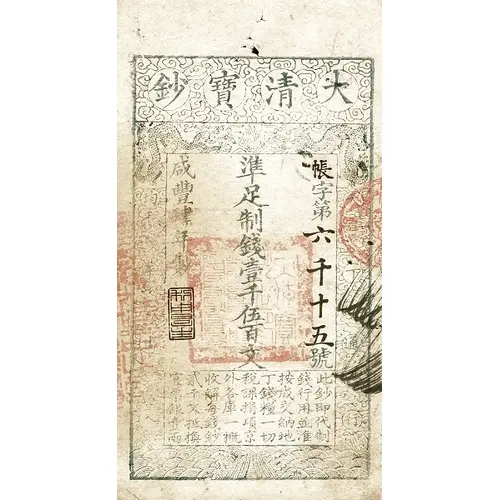 大清寶鈔
帳字第六千十五號
準足制錢壹千伍百文
咸豐肆年製
此鈔即代制
錢行用並准
按成交納地
丁錢糧一切
稅課捐項京
外各庫一概
收解每錢鈔
貳千文抵換
官票銀壹兩